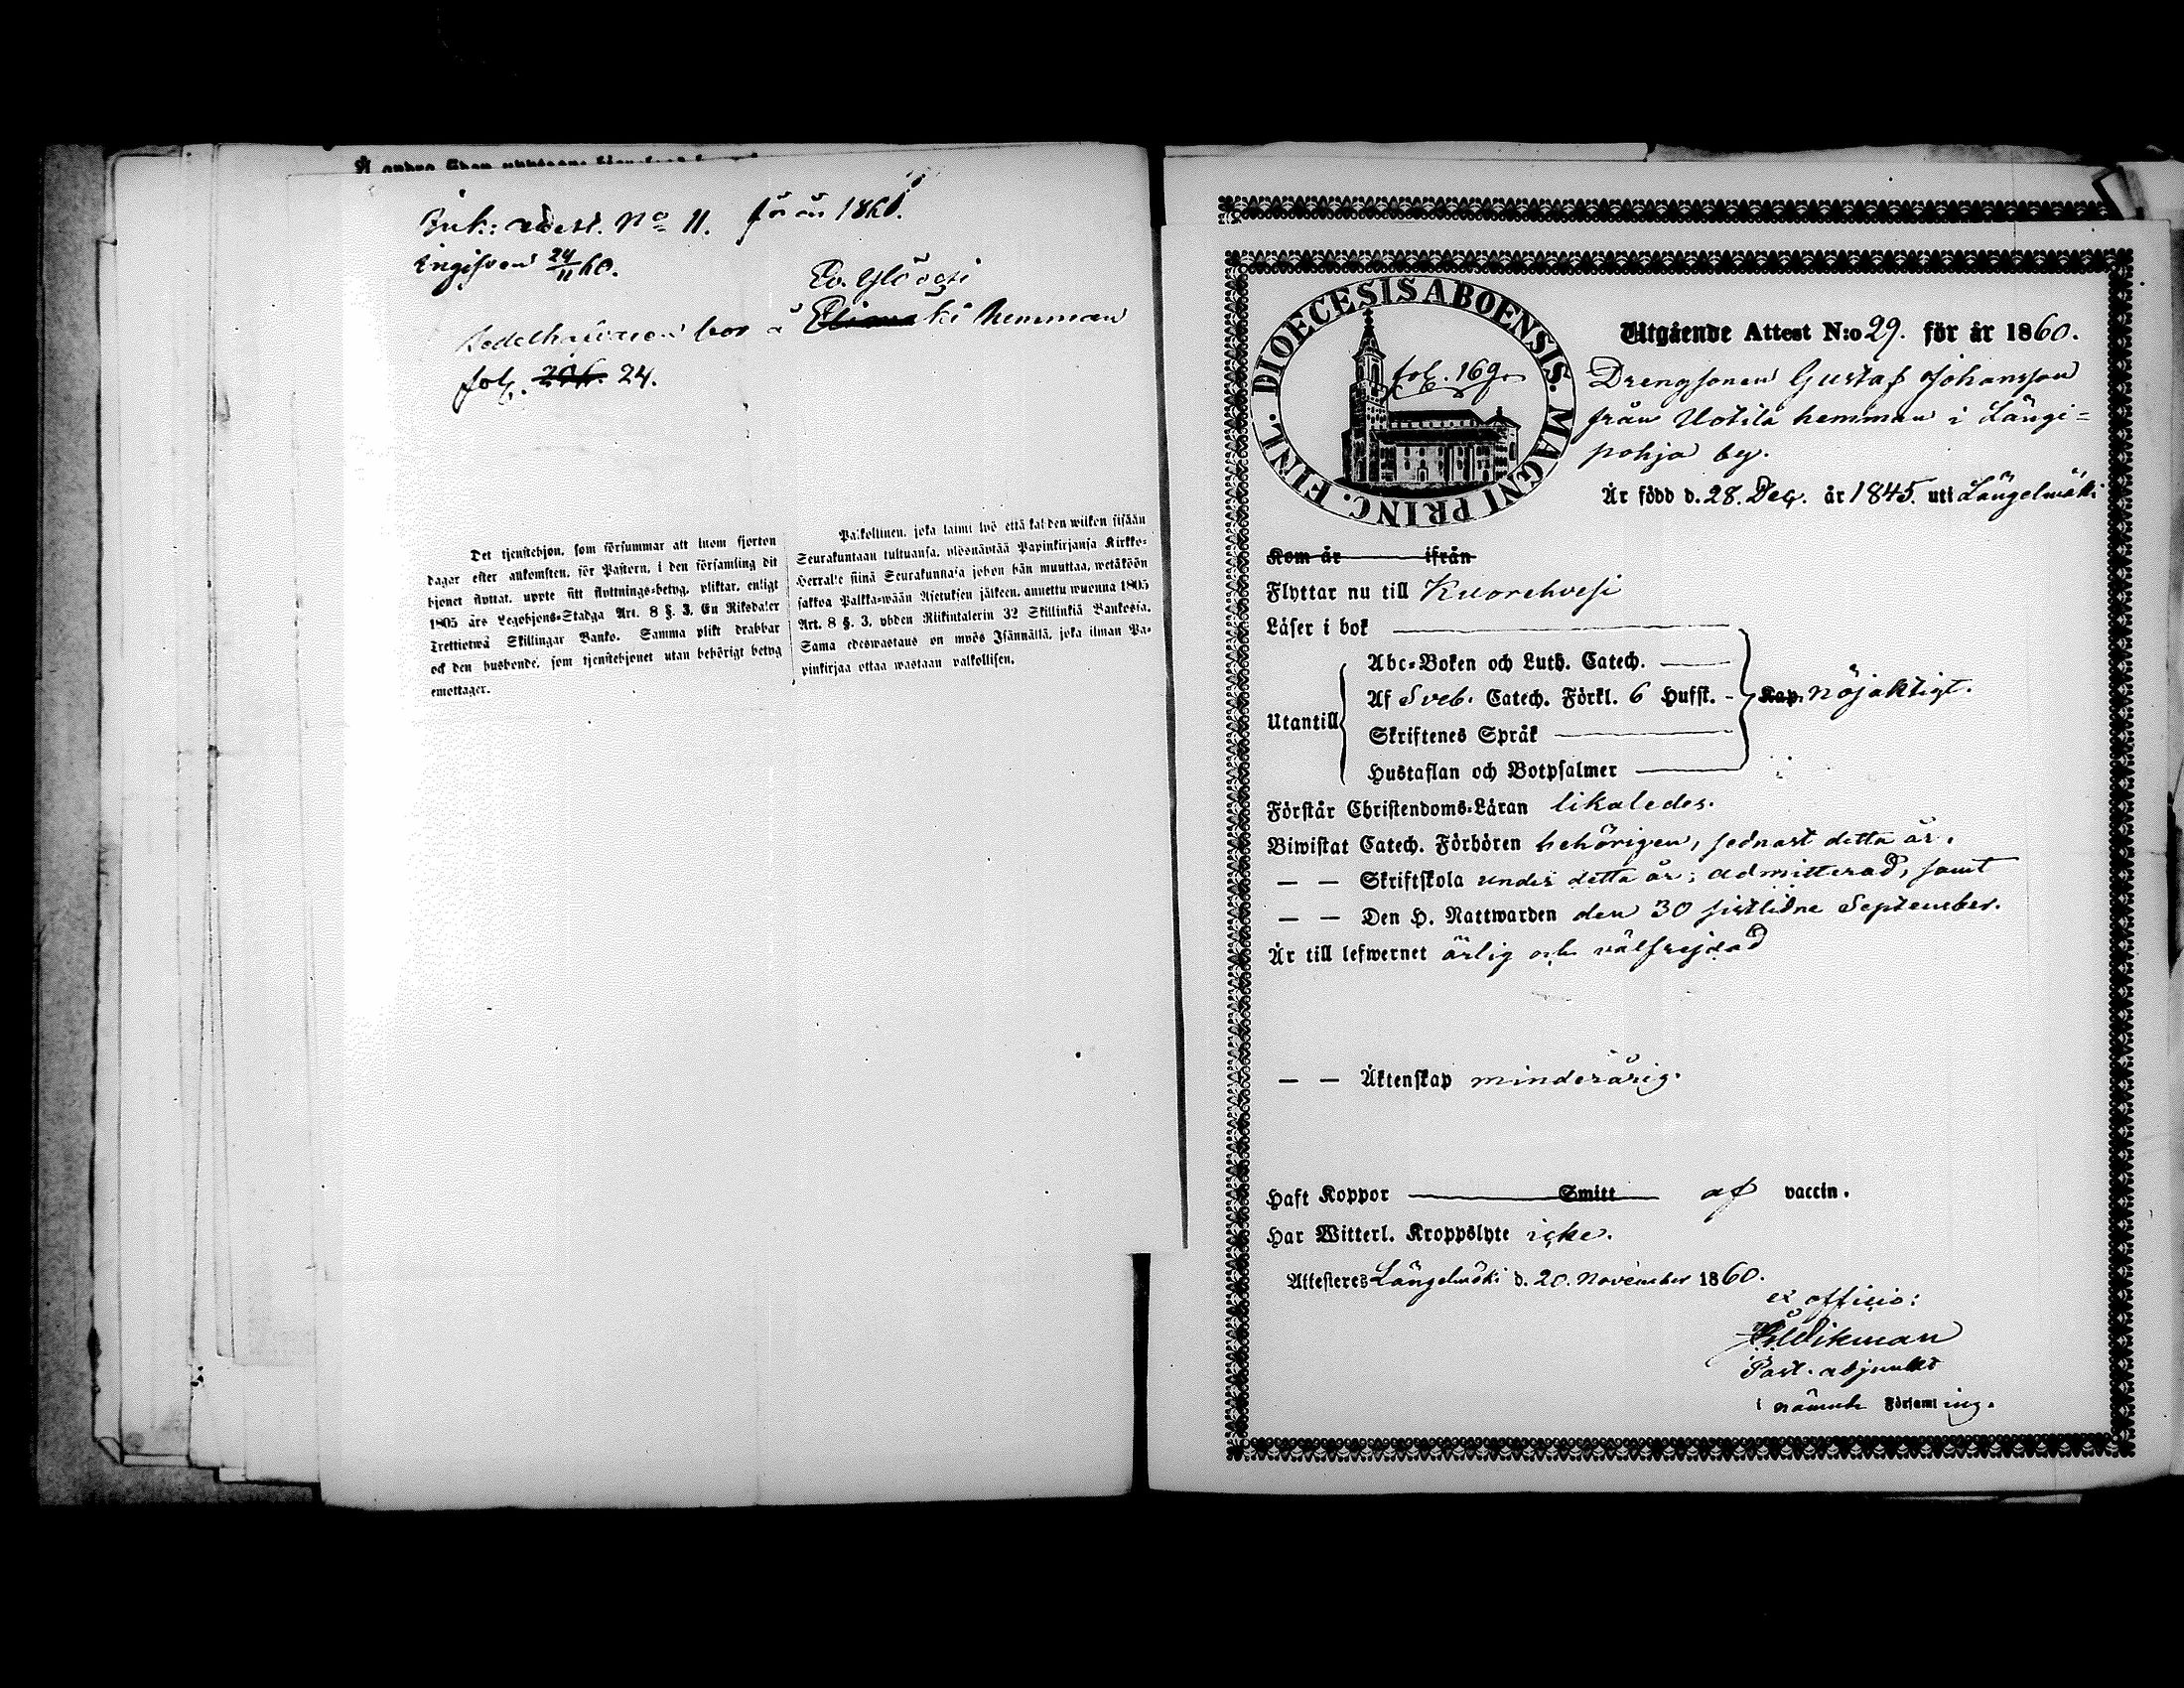 Ink: attest. No 11. för år 1861.
Ingifven 24/11 60.
Ylöösi
bor å ki hemman
fol. 24.
Det tjenstehjon, som försummar att inom fjorton
dagar efter ankomsten, för Pastorn, i den församling dit
hjonet flyttat, uppte sitt flyttnings-betyg, pliktar, enligt
1805 års Legohjons-Stadga Art. 8 §. 3. En Riksdaler
Trettiotwå Skillingar Banko. Samma plikt drabbar
ock den husbonde, som tjenstehjonet utan behörigt betyg
emottager.
Palkollinen, joka laimi lyö että kahden wiikon sisään
Seurakuntaan tultuansa, ylösnäyttää Papinkirjansa Kirkko-
Herralle siinä Seurakunnasa johon hän muuttaa, wetäköön
sakkoa Palkka-wään Asetuksen jälkeen, annettu wuonna 1805
Art. 8 §. 3. yhden Riikintalerin 32 Skillinkiä Bankossa.
Sama edeswastaus on myös Isännällä, joka ilman Pa-
pinkirjaa ottaa wastaan palkollisen.
DIOECESIS ABOENSIS. MAGNI PRINC. FINL.
fol. 169.
Utgående Attest N:o 29. för år 1860.
Drengsonen Gustaf Johansson
från Uotila hemman i Längi=
pohja by.
Är född d. 28. Dec. år 1845. uti Längelmäki
Kom år ifrån
Flyttar nu till Kuorehvesi
Läser i bok
Utantill
Abc-Boken och Luth. Catech.
Af Sveb. Catech. Förkl. 6 Hufst. - Kap. nöjaktigt.
Skriftenes Språk
Hustaflan och Botpsalmer
Förstår Christendoms-Läran likaledes.
Biwistat Catech. Förhören behörigen, sednast detta år.
— — Skriftskola under detta år, admitterad, samt
— — Den H. Nattwarden den 30 sistlidne September.
Är till lefwernet ärlig och välfrejdad
— — Äktenskap minderårig.
Haft Koppor Smitt af vaccin.
Har Witterl. Kroppslyte icke.
Attesteres Längelmäki d. 20. November 1860.
ex officio:
Wikman
Past. adjunkt
i nämnde Församling.